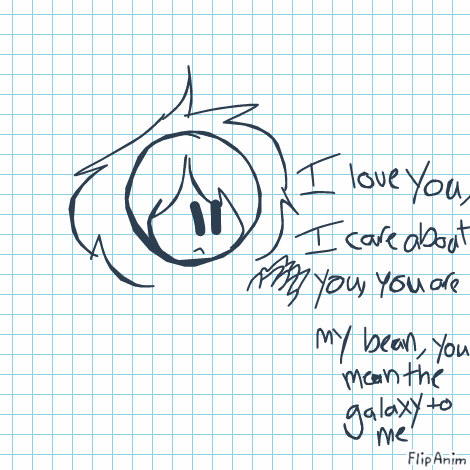 I love you,
I care about
you, you are
my bean, you
mean the
galaxy to
me
FlipAnim